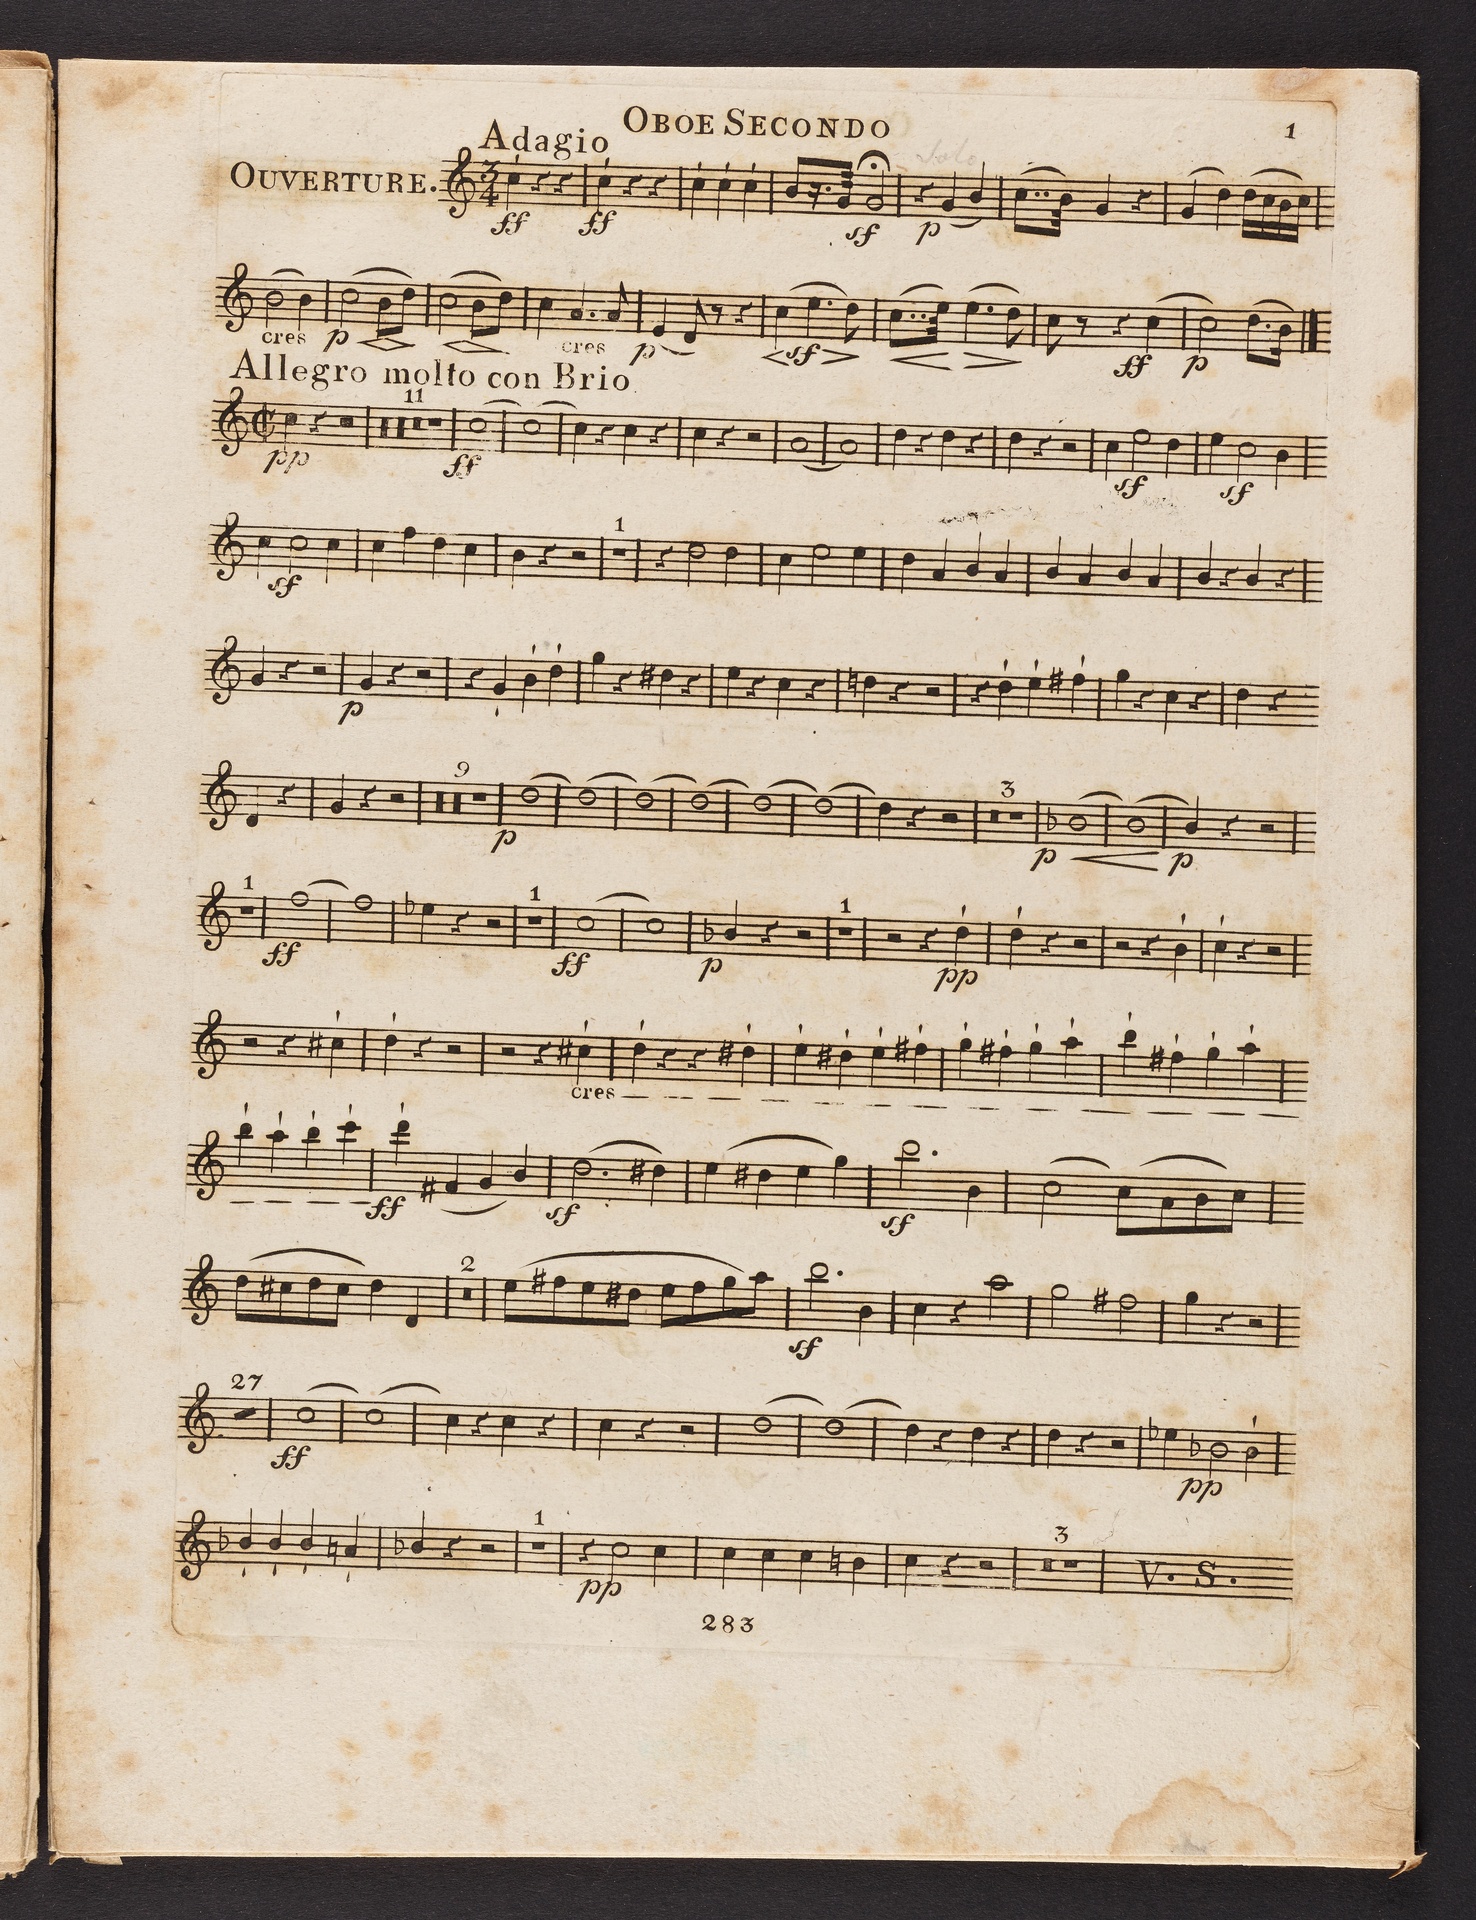 OBOE SECONDO
1
Adagio
OUVERTURE.
3
4
ff ff sf p
cres p cres p sf ff p
Allegro molto con Brio
11
pp ff sf sf
1
sf
p
9 3
p p p
1 1 1
ff ff p pp
cres
ff sf sf
2
sf
27
ff pp
1 3
pp V. S.
283